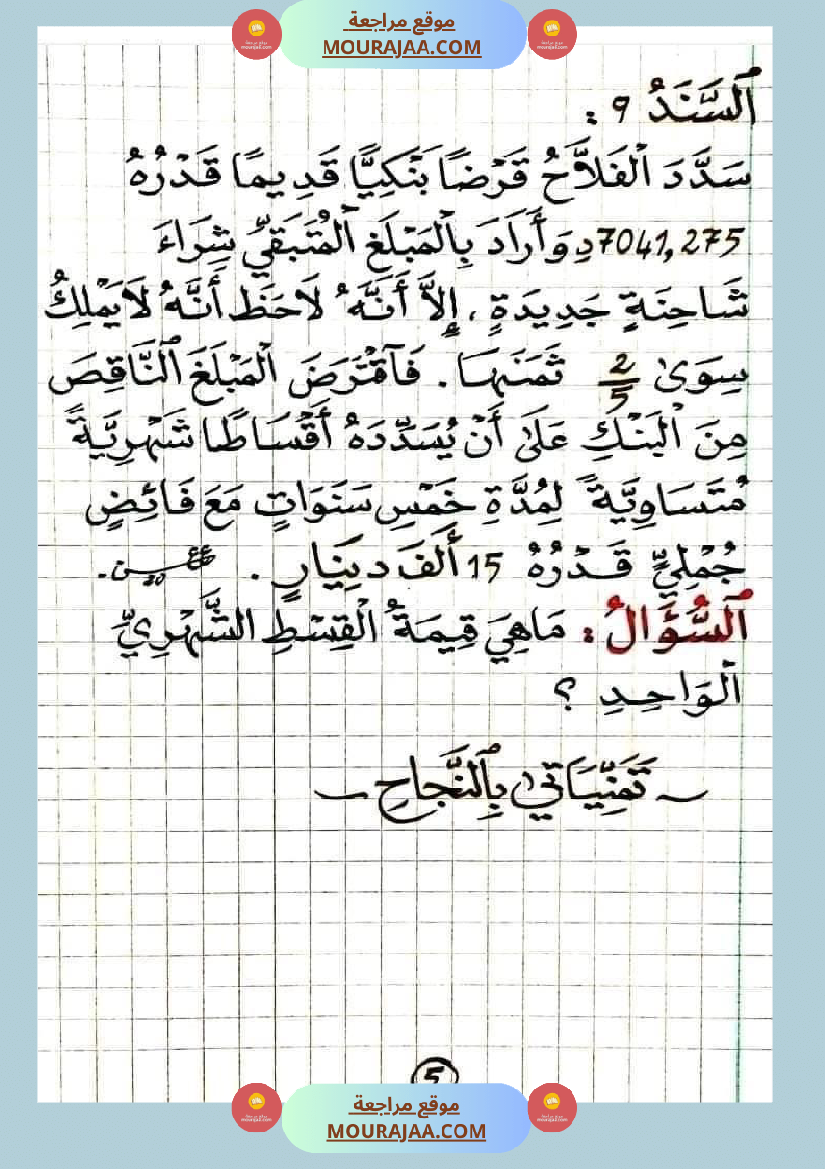 موقع مراجعة
MOURAJAA.COM
اَلسَّنَدُ 9 :
سَدَّدَ الْفَلاَّحُ قَرْضًا بَنْكِيًّا قَدِيمًا قَدْرُهُ
7041,275دِ وَأَرَادَ بِالْمَبْلَغِ الْمُتَبَقِّي شِرَاءَ
شَاحِنَةٍ جَدِيدَةٍ ، إِلاَّ أَنَّهُ لاَحَظَ أَنَّهُ لاَ يَمْلِكُ
سِوَى 2/5 ثَمَنِهَا . فَاقْتَرَضَ الْمَبْلَغَ النَّاقِصَ
مِنَ الْبَنْكِ عَلَى أَنْ يُسَدِّدَهُ أَقْسَاطًا شَهْرِيَّةً
مُتَسَاوِيَّةً لِمُدَّةِ خَمْسِ سَنَوَاتٍ مَعَ فَائِضٍ
جُمْلِيٍّ قَدْرُهُ 15 أَلْفَ دِينَارٍ .
اَلسُّؤَالُ : مَا هِيَ قِيمَةُ الْقِسْطِ الشَّهْرِيِّ
الْوَاحِدِ ؟
~ تَمَنِّيَاتِي بِالنَّجَاحِ ~
5
موقع مراجعة
MOURAJAA.COM